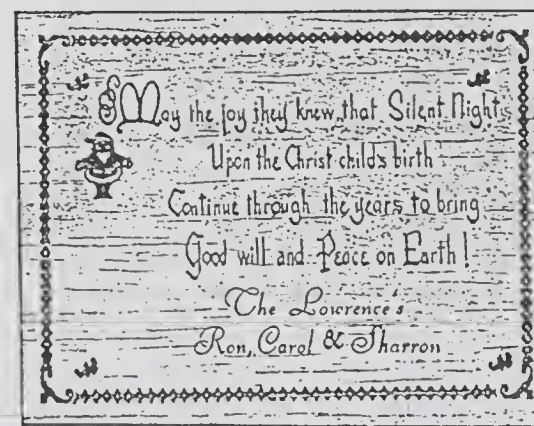 May the joy they knew, that Silent Night
Upon the Christ child's birth
Continue through the years to bring
Good will and Peace on Earth!
The Lowrence's
Ron, Carol & Sharron